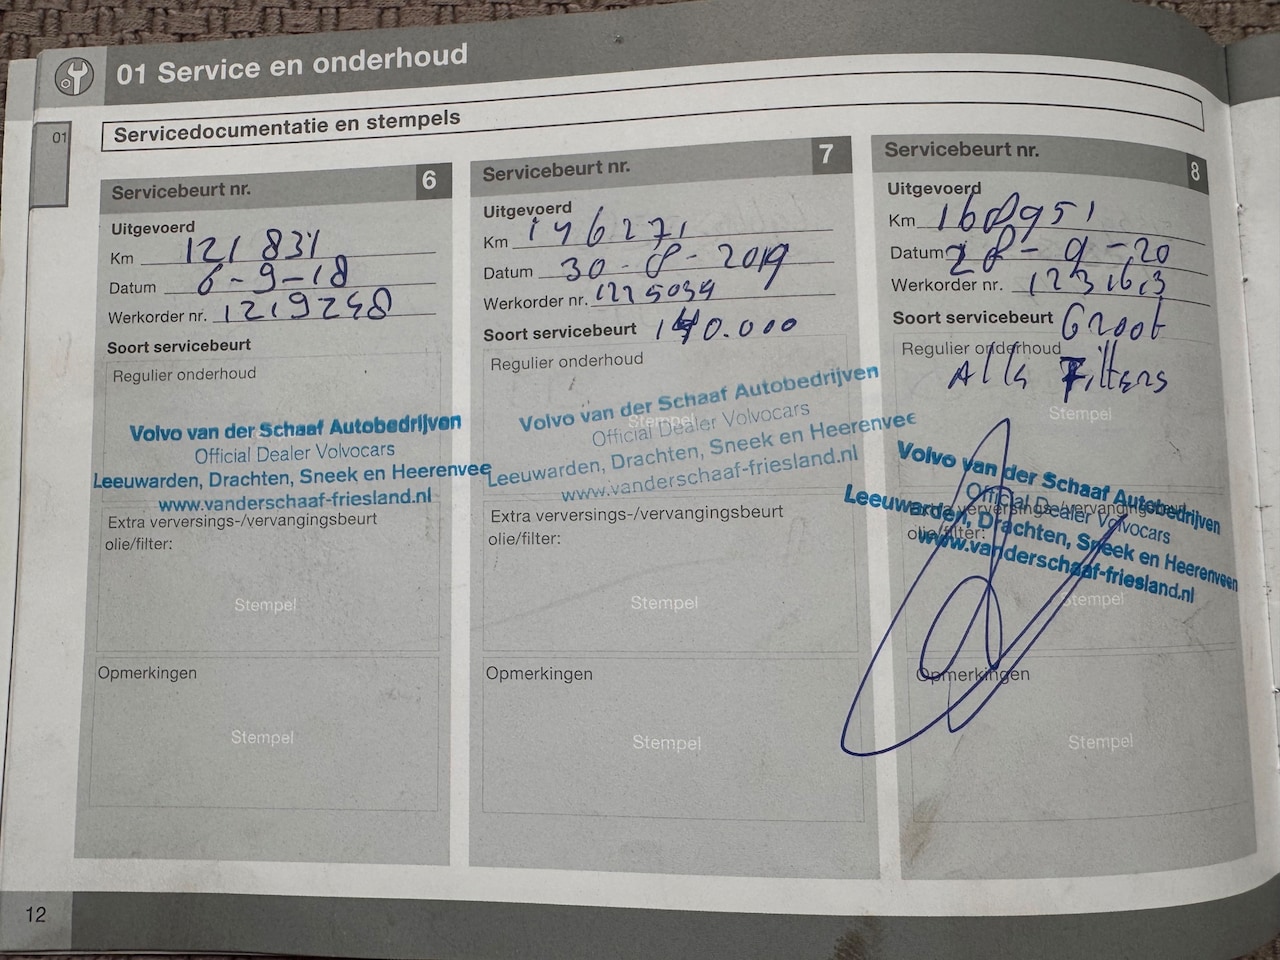 01 Service en onderhoud
01
Servicedocumentatie en stempels
Servicebeurt nr. 6
Uitgevoerd
Km 121 831
Datum 6-9-18
Werkorder nr. 1219248
Soort servicebeurt
Regulier onderhoud
Volvo van der Schaaf Autobedrijven
Official Dealer Volvocars
Leeuwarden, Drachten, Sneek en Heerenvee
www.vanderschaaf-friesland.nl
Extra verversings-/vervangingsbeurt
olie/filter:
Stempel
Opmerkingen
Stempel
Servicebeurt nr. 7
Uitgevoerd
Km 146271
Datum 30-8-2019
Werkorder nr. 1225034
Soort servicebeurt 140.000
Regulier onderhoud
Stempel
Volvo van der Schaaf Autobedrijven
Official Dealer Volvocars
Leeuwarden, Drachten, Sneek en Heerenvee
www.vanderschaaf-friesland.nl
Extra verversings-/vervangingsbeurt
olie/filter:
Stempel
Opmerkingen
Stempel
Servicebeurt nr. 8
Uitgevoerd
Km 168951
Datum 28-9-20
Werkorder nr. 1231613
Soort servicebeurt Groot
Regulier onderhoud
Alle Filters
Stempel
Volvo van der Schaaf Autobedrijven
Official Dealer Volvocars
Leeuwarden, Drachten, Sneek en Heerenveen
www.vanderschaaf-friesland.nl
verversings-/vervangingsbeurt
olie/filter:
Stempel
Opmerkingen
Stempel
12